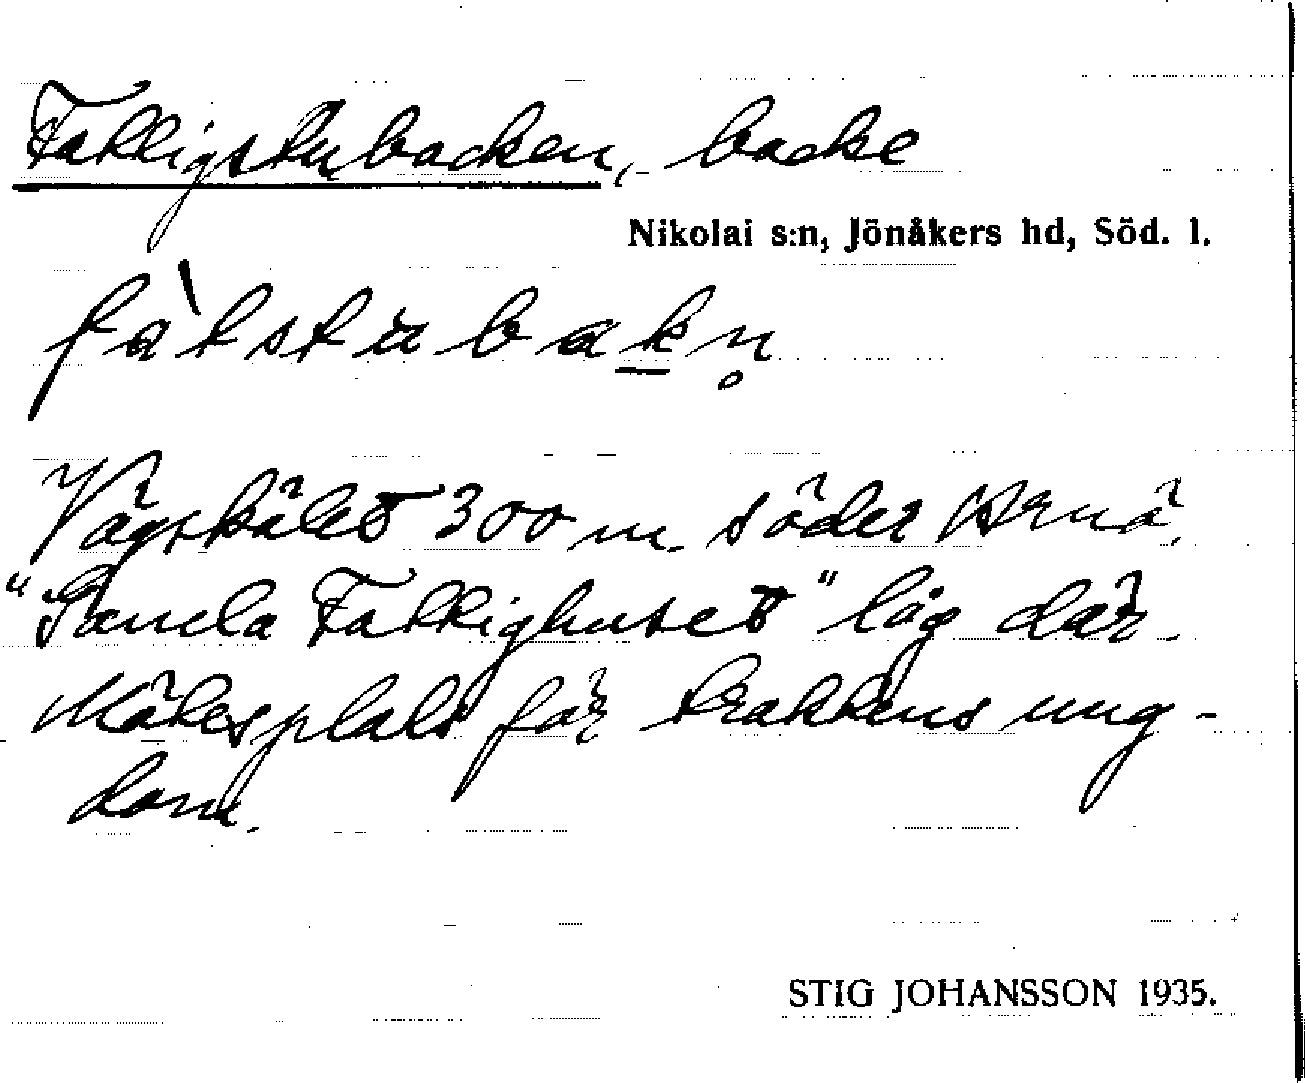 Fattigstubacken, backe
Nikolai s:n, Jönåkers hd, Söd. l.
fàtstubakn̥
Vägskälet 300 m. söder Arnö.
"Gamla Fattighuset" låg där.
Mötesplats för traktens ung-
dom.
STIG JOHANSSON 1935.